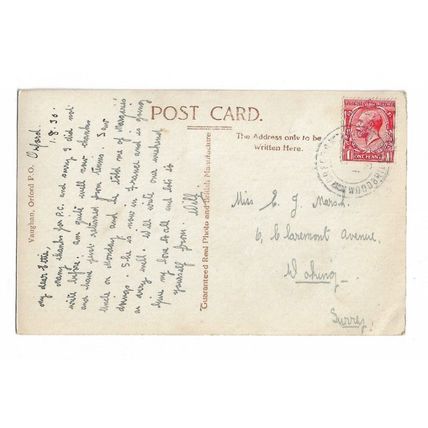 Vaughan, Orford P.O.
Orford.
1.8.30.
My dear Ettie,
Many thanks for P.C. and sorry I did not
write before. Am quite well now thanks
and have just returned from Saw
Uncle on Monday and he told me of Margerie's
doings. She is now in France and is going
on very well. Will write one weekend.
Give my love to all and lots to
yourself from Will
Guaranteed Real Photo and British Manufacture
POST CARD.
The Address only to be
Written Here.
ONE PENNY
Miss E. J. Marsh.
6, Claremont Avenue,
Woking
Surrey.